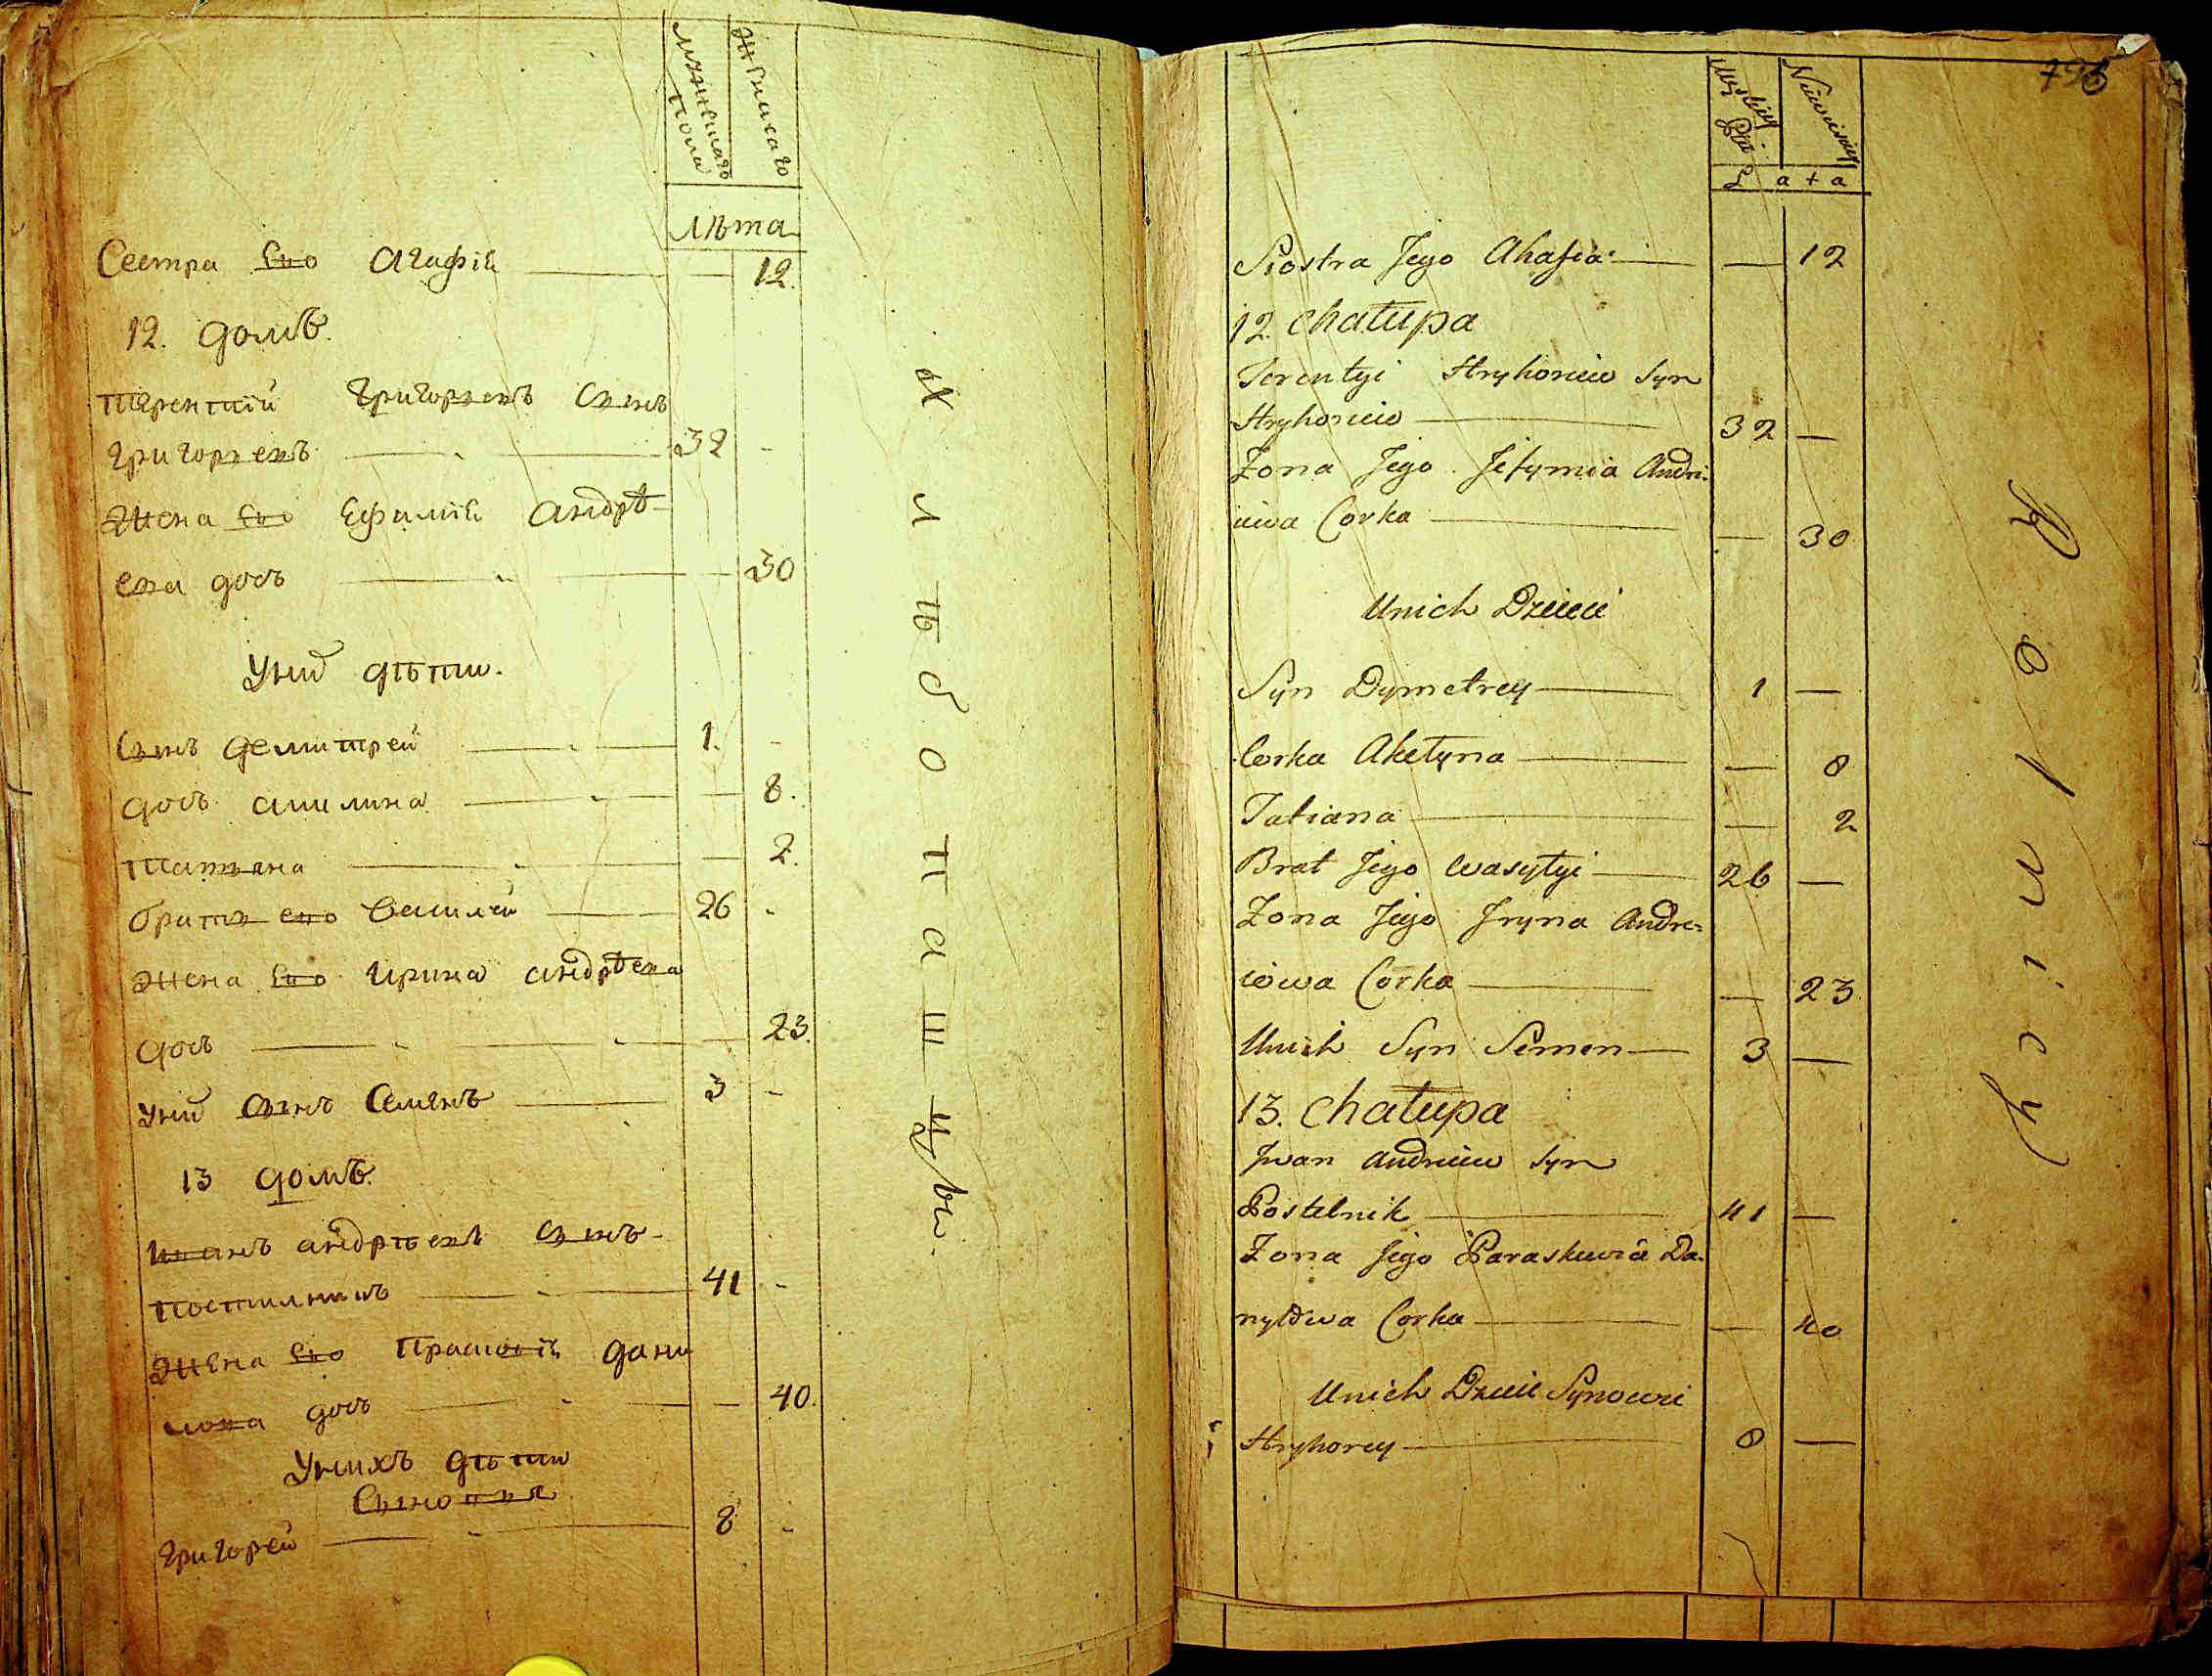 мужескаго пола
женскаго
лѣта
Сестра Его Агафiя 12.
12. домъ.
терентий григорьевъ сынъ
григорьевъ 32 -
Жена Его Ефимiя андрѣ
ева дочь 30
У них дѣти.
Сынъ демитрей 1. -
дочь акилина 8.
татьяна 2.
братъ его василей 26 -
жена Его ирина андрѣева
дочь 23.
У них сынъ Семянъ 3 -
13 домъ.
иванъ андрѣевъ сынъ
постилникъ 41 -
жена Его Прасковiя дани
лова дочь 40.
У нихъ дѣти
Сыновья
григорей 8 -
хлѣбопашцы.
795
Męskiey Płci
Niewieściey
Lata
Siostra Jego Ahafia 12
12 Chałupa
Terentyi Hryhoriew Syn
Hryhoriew 32 —
Żona Jego Jefymia Andri-
iewa Corka — 30
Unich Dzieci
Syn Dymetrey 1 —
Corka Akełyna — 8
Tatiana — 2
Brat Jego Wasyłyi 26 —
Żona Jego Jryna Andre-
iewa Corka — 23
Unich Syn Semen 3 —
13. Chałupa
Jwan Andreiew Syn
Postelnik 41 —
Żona Jego Paraskewia Da-
nyłowa Corka — 40
Unich Dzieci Synowie
Hryhorey 8 —
Rolnicy